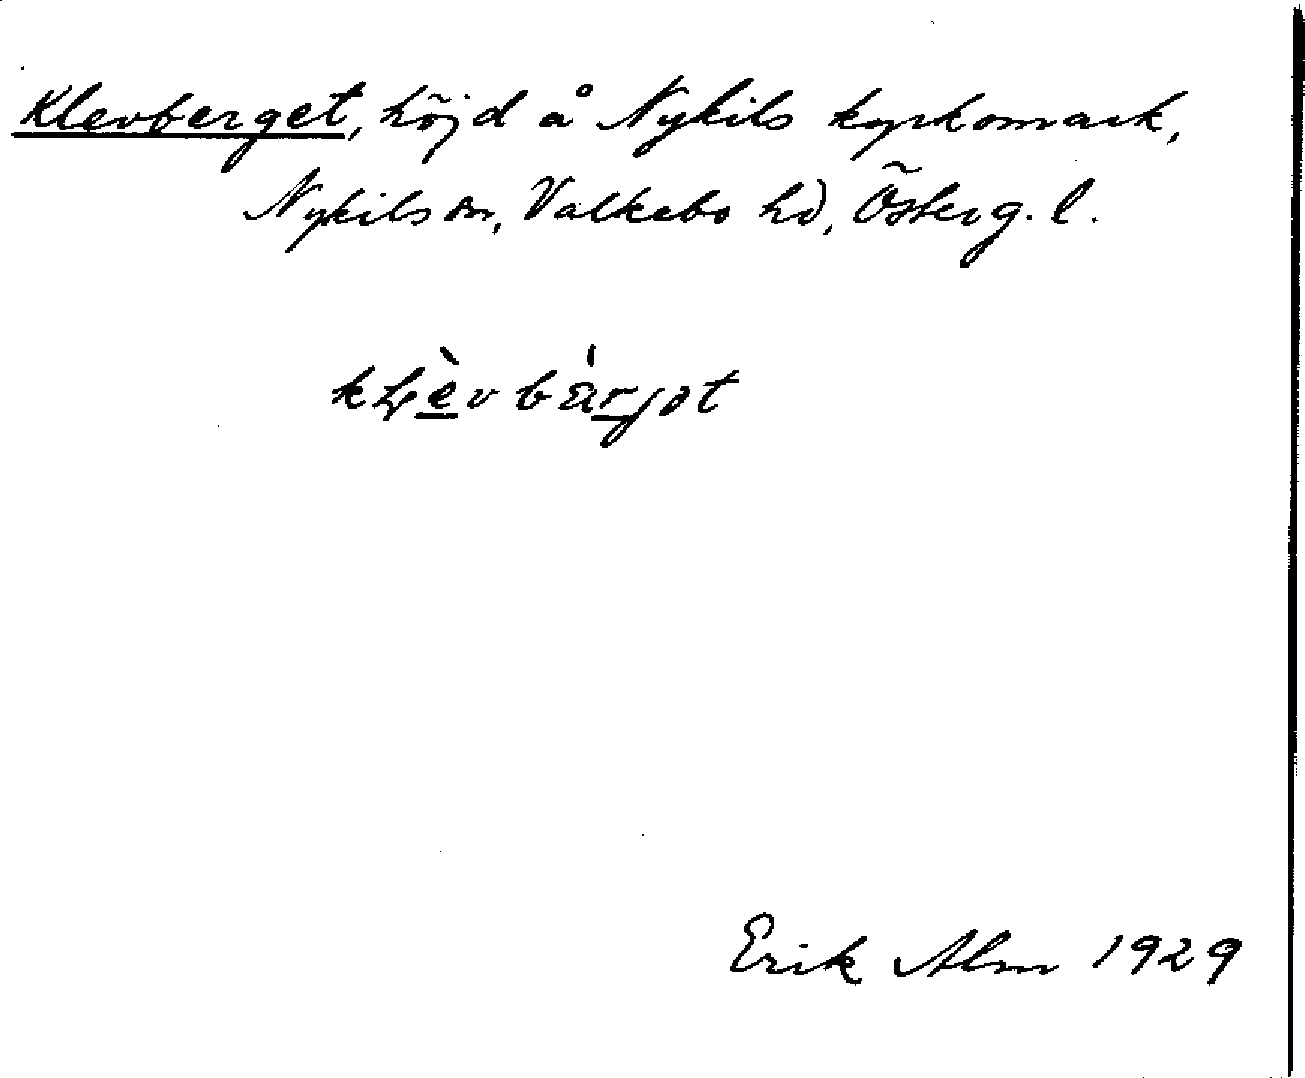 Klevberget, höjd å Nykils kyrkomark,
Nykils sn, Valkebo hd, Österg. l.
kḷè̲vbá̈r̲jət
Erik Alm 1929